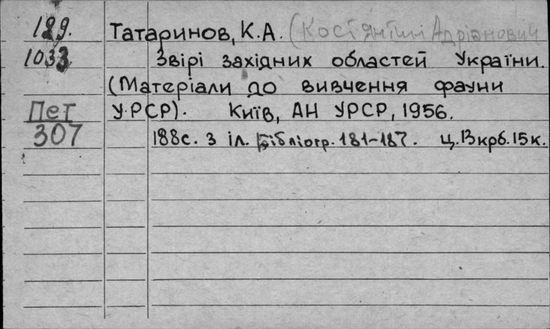 189. Татаринов, К.А. (Костянтин Адріянович
1033 Звірі західних областей України.
(Матеріали до вивчення фауни
Пет УРСР). Київ, АН УРСР, 1956.
307 188с. з іл. Бібліогр. 181-187. ц. 13 крб. 15 к.